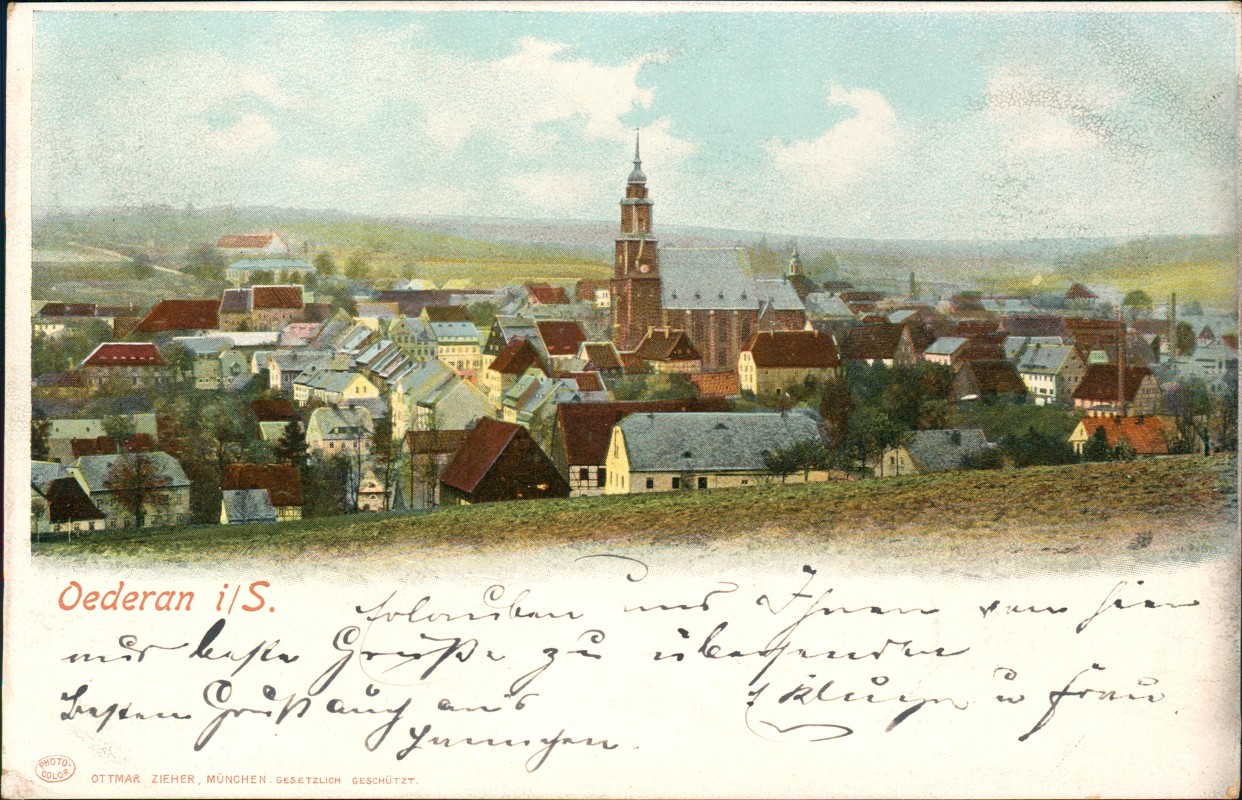 Oederan i/S.
Erlauben uns Ihnen von hier
aus beste Grüße zu übersenden
Besten Gruß auch an's
u Frau
PHOTO-
COLOR
OTTMAR ZIEHER, MÜNCHEN. GESETZLICH GESCHÜTZT.